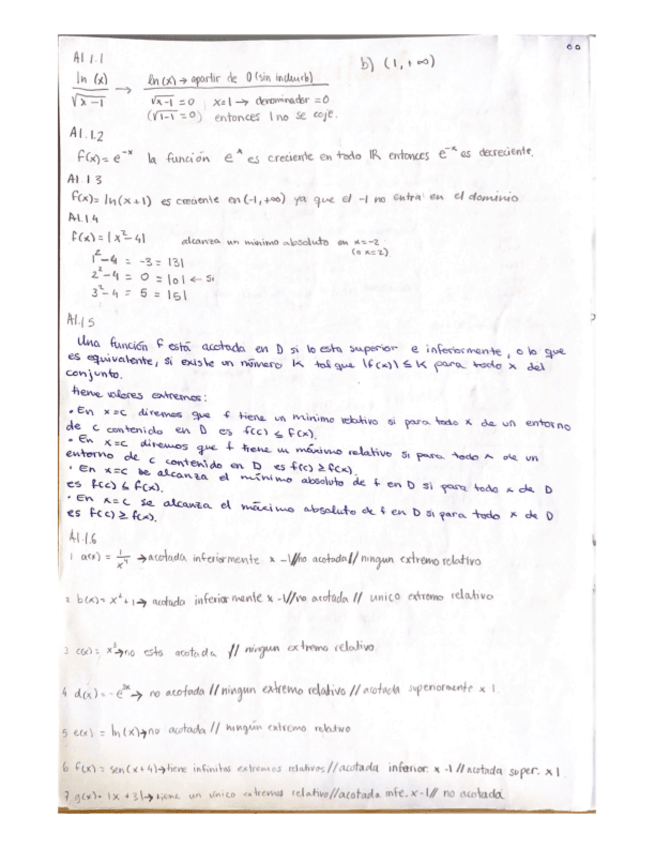 A1.1.1
ln(x) / √x-1 → ln(x) → apartir de 0 (sin incluirlo) b) (1,+∞)
√x-1 = 0 x=1 → denominador = 0
(√1-1 = 0) entonces 1 no se coje.
A1.1.2
f(x) = e^-x la función e^x es creciente en todo IR entonces e^-x es decreciente.
A1.1.3
f(x) = ln(x+1) es creciente en (-1,+∞) ya que el -1 no entra en el dominio
A1.1.4
f(x) = |x²-4| alcanza un mínimo absoluto en x=-2
(o x=2)
1²-4 = -3 = |3|
2²-4 = 0 = |0| ← Si
3²-4 = 5 = |5|
A1.1.5
Una función f está acotada en D si lo esta superior e inferiormente, o lo que
es equivalente, si existe un número K tal que |f(x)| ≤ K para todo x del
conjunto.
tiene valores extremos:
• En x=c diremos que f tiene un mínimo relativo si para todo x de un entorno
de c contenido en D es f(c) ≤ f(x).
• En x=c diremos que f tiene un máximo relativo si para todo x de un
entorno de c contenido en D es f(c) ≥ f(x).
• En x=c se alcanza el mínimo absoluto de f en D si para todo x de D
es f(c) ≤ f(x).
• En x=c se alcanza el máximo absoluto de f en D si para todo x de D
es f(c) ≥ f(x).
A1.1.6
1 a(x) = 1/x⁴ → acotada inferiormente x -1//no acotada//ningun extremo relativo
2 b(x) = x⁴+1 → acotada inferiormente x -1//no acotada // unico extremo relativo
3 c(x) = x³ → no esta acotada // ningun extremo relativo.
4 d(x) = -e^2x → no acotada // ningun extremo relativo // acotada superiormente x 1.
5 e(x) = ln(x) → no acotada // ningún extremo relativo
6 f(x) = sen(x+4) → tiene infinitos extremos relativos // acotada inferior. x -1 // acotada super. x 1
7 g(x) = |x+3| → tiene un unico extremos relativo // acotada infe. x -1 // no acotada